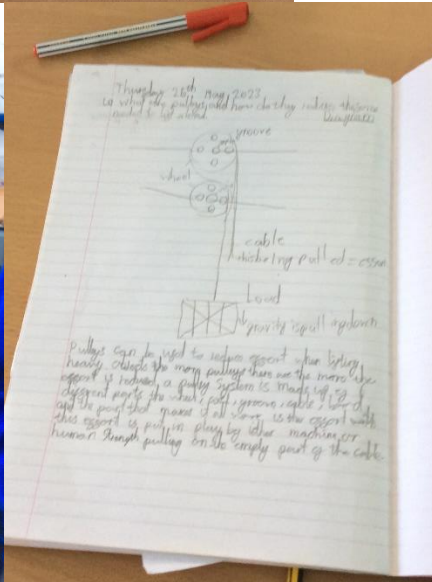 Thursday 25th May 2023
Lo what are pulleys and how do they reduce the force
needed to
groove
axle
wheel
cable
is being pulled = essort
Load
gravity is pulling down
Pulleys can be used to reduce essort when lisling
heavy objects the more pulleys there are the more the
essort is reduced a pully system is made up of
disserent parts the wheel, , groove, cable, load
and the part that makes it all work is the essort
this essort is put in play by ether machine or
human strength pulling on the empty part of the cable.